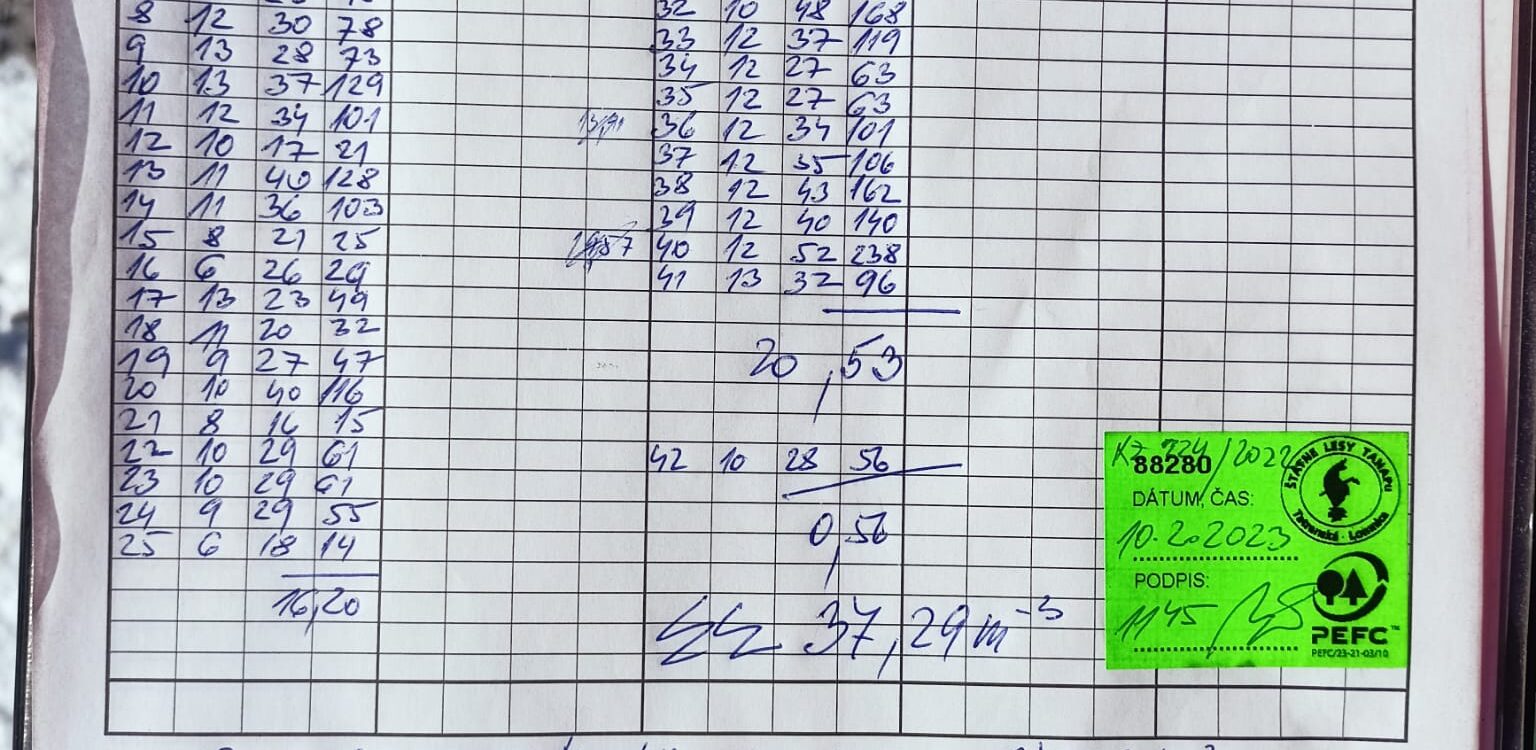 8 12 30 78
9 13 28 73
10 13 37 129
11 12 34 101
12 10 17 21
13 11 40 128
14 11 36 103
15 8 21 25
16 6 26 29
17 13 23 49
18 11 20 32
19 9 27 47
20 10 40 116
21 8 16 15
22 10 29 61
23 10 29 61
24 9 29 55
25 6 18 14
16,20
32 10 48 168
33 12 37 119
34 12 27 63
35 12 27 63
36 12 34 101
37 12 35 106
38 12 43 162
39 12 40 140
40 12 52 238
41 13 32 96
20,53
42 10 28 56
0,56
37,29 m-3
/2022
88280
DÁTUM, ČAS:
10.2.2023
PODPIS:
1145
ŠTÁTNE LESY TANAPU
Tatranská Lomnica
PEFC™
PEFC/23-21-03/10